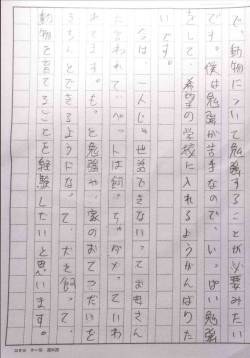 ど、動物について勉強することが必要みたい
です。僕は勉強が苦手なので、いっぱい勉強
をして、希望の学校に入れるようがんばりた
いです。
は一人じゃ世話できないってお母さん
に言われて、ペットは飼っちゃダメっていわ
れてます。もっと勉強や、家のおてつだいを
きちんとできるようになって、犬を飼って、
動物を育てることを経験したいと思います。